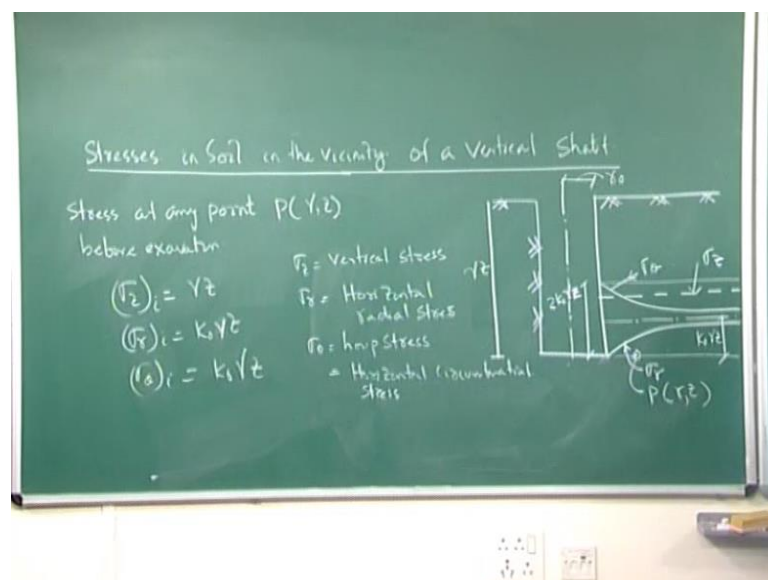 Stresses in Soil in the vicinity of a Vertical Shaft
Stress at any point P(r,z)
before
(σz)i = γz
(σr)i = K₀γz
(σθ)i = K₀γz
σz = Vertical stress
σr = Horizontal
radial stress
σθ = hoop stress
= Horizontal Circumferential
stress
r₀
γz
2K₀γz
σθ
σz
K₀γz
σr
P(r,z)